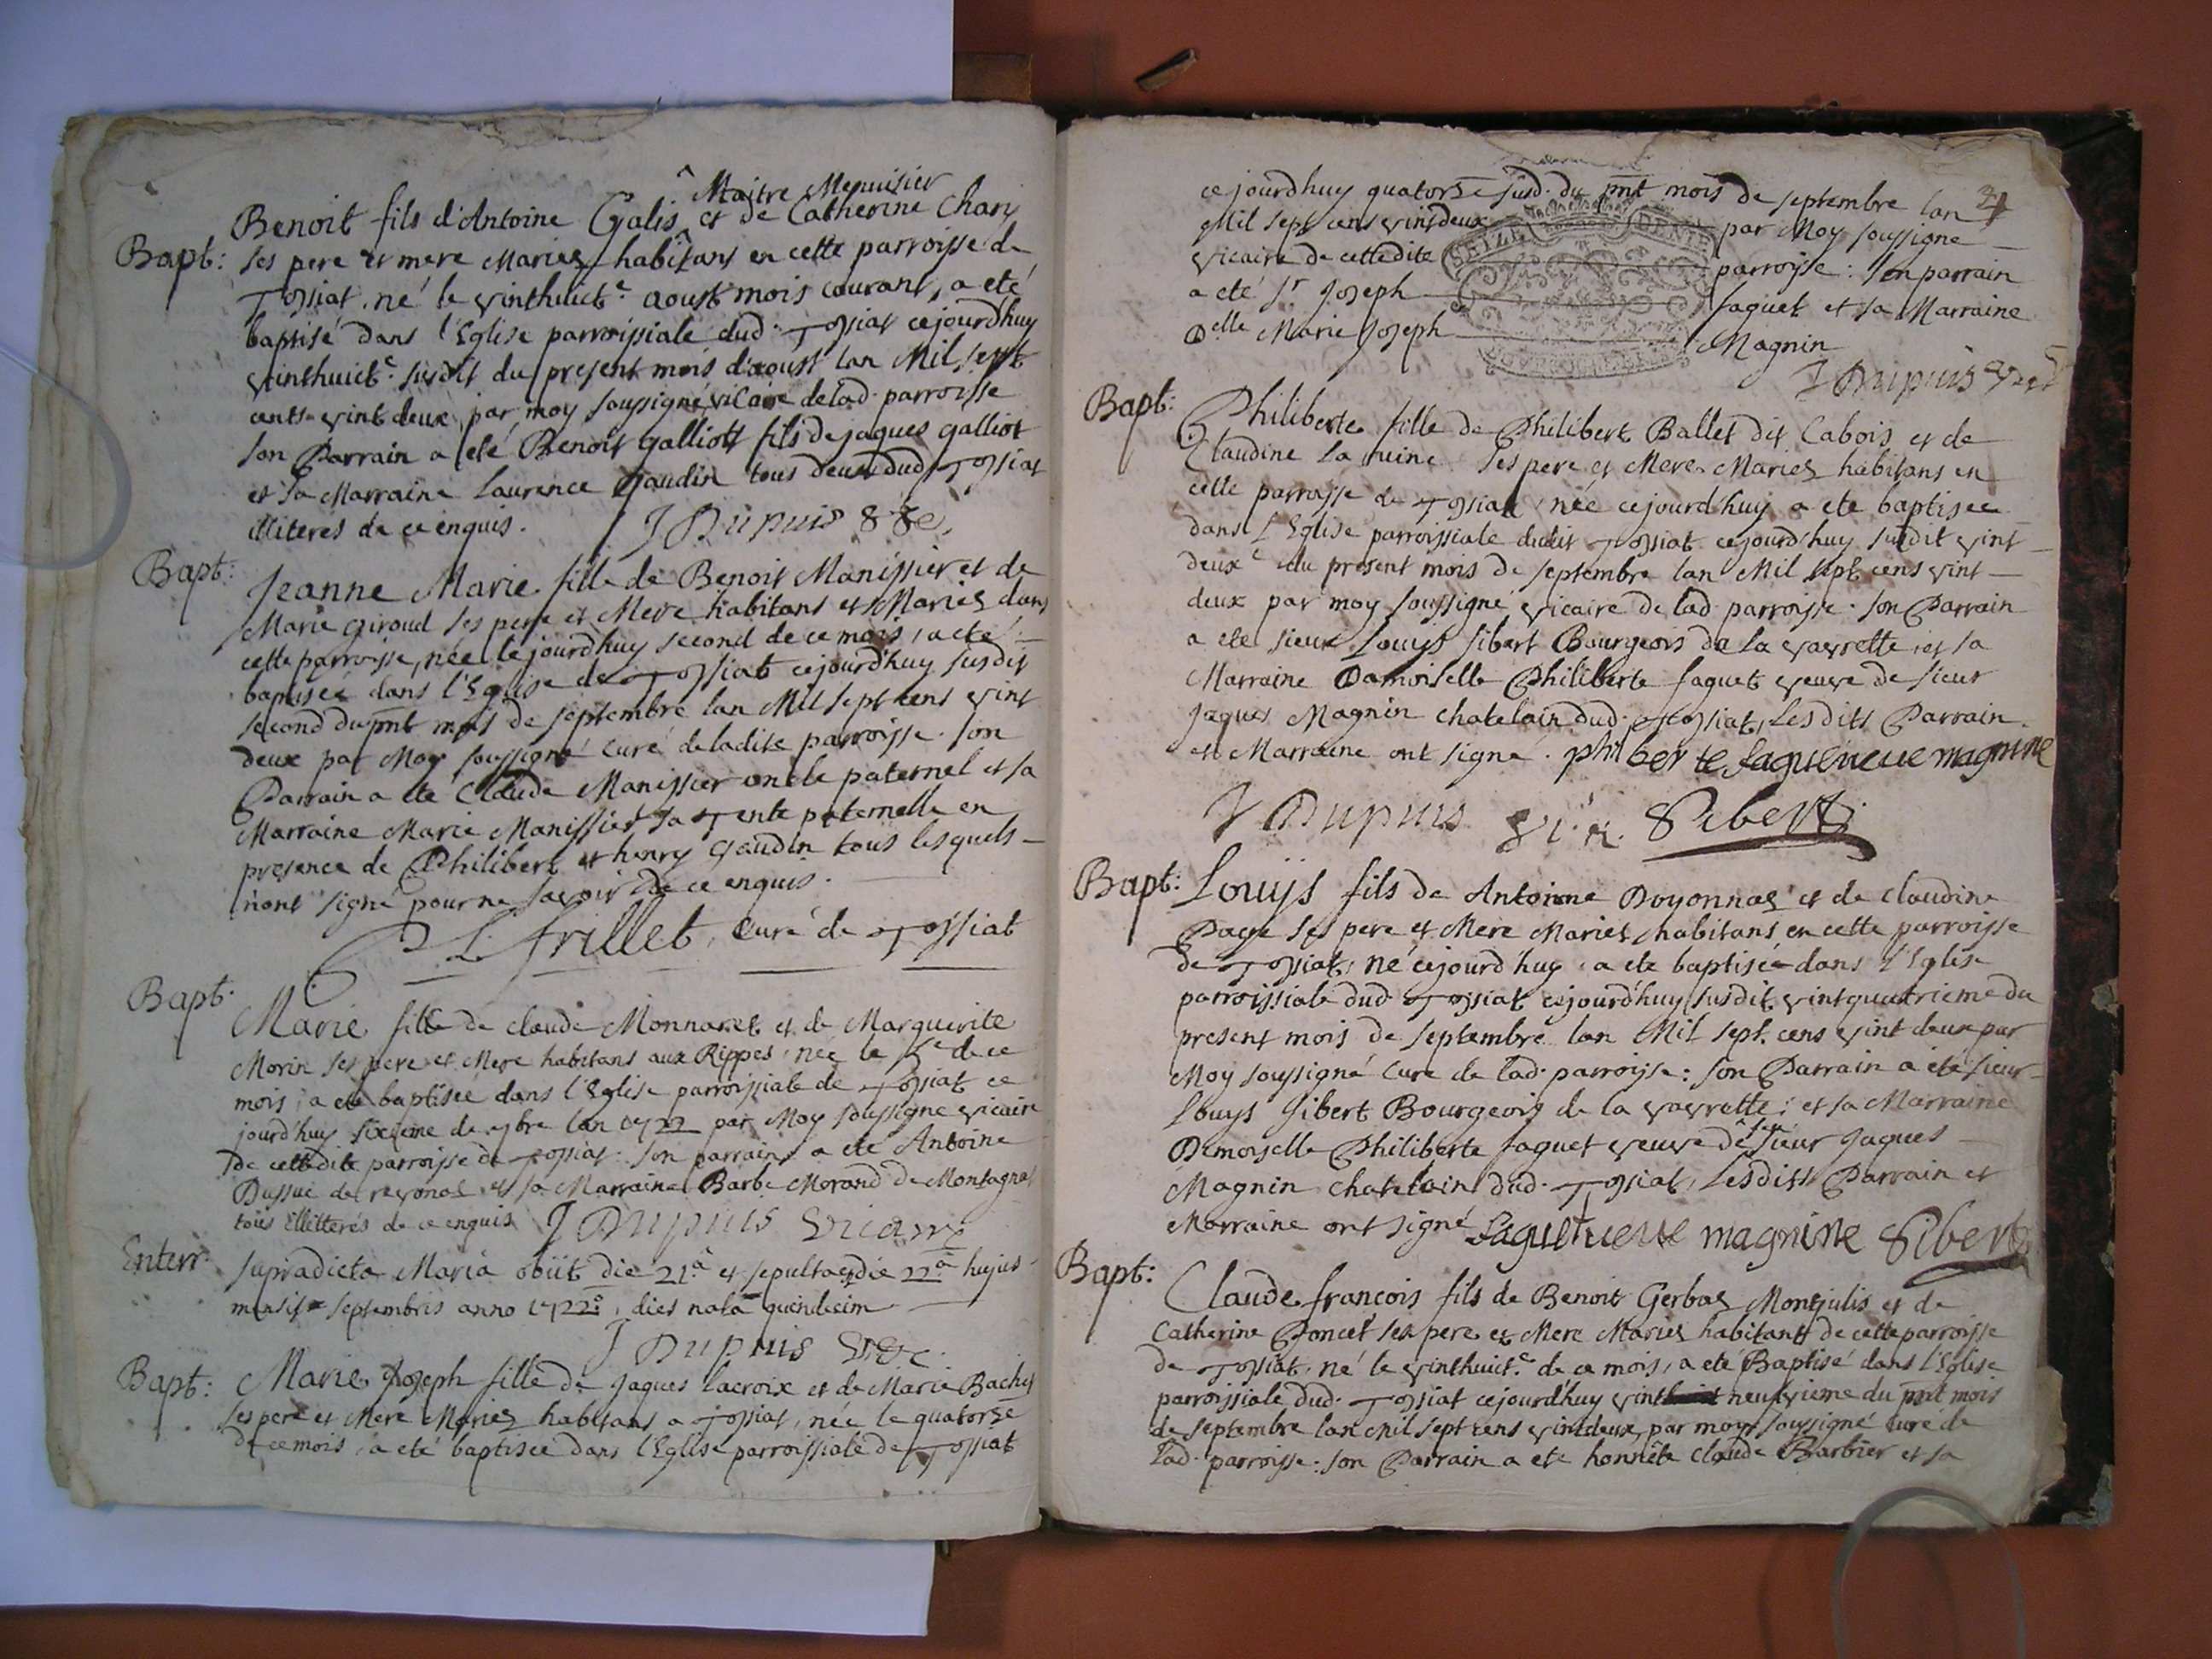 ^ Maitre Menuisier
Benoit fils d'Antoine Galis ^ et de Catherine Chary
Bapt: ses pere et mere Mariez habitans en cette parroisse de
Tossiat. né le vinthuict.e aoust mois courant, a eté
baptisé dans l'Eglise parroissiale dud. Tossiat cejourdhuy
vinthuict.e susdit du present mois d'aoust lan Mil sept
cents vint deux par moy soussigné vicaire de lad. parroisse
son Parrain a eté Benoit galliott fils de jaques galliot
et sa Marraine Laurence Gaudin tous deux dud. Tossiat
illiteres de ce enquis. J Dupuis
Bapt: Jeanne Marie fille de Benoit Manissier et de
Marie giroud ses pere et Mere habitans et Mariez dans
cette parroisse, née lejourdhuy second de ce mois, a eté
baptisée dans l'Eglise de Tossiat cejourdhuy susdit
second du pnt mois de septembre lan Mil sept cens vint
deux par Moy soussigné Curé de ladite parroisse. son
Parrain a ete Claude Manissier oncle paternel et sa
Marraine Marie Manissier sa Tente paternelle en
presence de Philibert et henry Gaudin tous lesquels
n'ont signé pour ne savoir de ce enquis.
frillet, Curé de Tossiat
Bapt. Marie fille de claude Monnaret et de Marguerite
Morin ses pere et Mere habitans aux Rippes, née le 5e de ce
mois, a eté baptisée dans l'Eglise parroissiale de Tossiat ce
jourd'huy sixieme de 7bre lan 1722 par Moy soussigné vicaire
de cettedite parroisse de Tossiat. son parrain a ete Antoine
Dussuc de revonas et sa Marraine Barbe Morand de Montagnat
tous illitterés de ce enquis J Dupuis vicaire
Enterr. supradicta Maria obiit die 21.a et sepulta e die 22.a hujus
mensis septembris anno 1722.o, dies nata quindecim
J Dupuis Vic.
Bapt: Marie Joseph fille de Jaques lacroix et de Marie Bachet
ses pere et Mere Mariez habitans a Tossiat, née le quatorse
de ce mois, a eté baptisée dans l'Eglise parroissiale de Tossiat
cejourdhuy quatorse susd. du pnt mois de septembre lan
Mil sept cens vintdeux par Moy soussigné
vicaire de cettedite parroisse: son parrain
a eté Sr Joseph faguet et sa Marraine
Delle Marie Joseph Magnin
J Dupuis
Bapt: Philiberte fille de Philibert Ballet dit Cabois et de
Claudine La ruine ses pere et Mere Mariez habitans en
cette parroisse de Tossiat, née cejourdhuy a ete baptisée
dans l'Eglise parroissiale dudit Tossiat cejourd'huy susdit vint
deux.e du present mois de septembre lan Mil sept cens vint
deux par moy soussigné vicaire de lad. parroisse. son Parrain
a ete sieur Louys Sibert Bourgeois de la vavrette, et sa
Marraine Damoiselle Philiberte faguet veuve de sieur
Jaques Magnin chatelain dud. Tossiat, Lesdits Parrain
et Marraine ont signé. philberte faguet veuve magnine
J Dupuis vic. Sibert
Bapt: Louys fils de Antoinne Doyonnas et de claudine
Page ses pere et Mere Mariez habitans en cette parroisse
de Tossiat, né cejourd'huy, a ete baptisée dans l'Eglise
parroissiale dud. Tossiat cejourd'huy susdit vintquatrieme du
present mois de septembre lan Mil sept cens vint deux par
Moy soussigné Curé de lad. parroisse: son Parrain a eté sieur
Louys Sibert Bourgeois de la vavrette; et sa Marraine
Demoiselle Philiberte faguet veuve de feu sieur Jaques
Magnin chatelain dud. Tossiat, Lesdits Parrain et
Marraine ont signé faguet veuve magnine Sibert
Bapt: Claude francois fils de Benoit Gerbas Montjulis et de
Catherine Poncet ses pere et Mere Mariez habitants de cette parroisse
de Tossiat, né le vinthuict.e de ce mois, a eté Baptisé dans l'Eglise
parroissiale dud. Tossiat cejourd'huy vint neufvieme du pnt mois
de septembre lan Mil sept cens vintdeux par moy soussigné Curé de
lad. parroisse: son Parrain a eté honnête Claude Barbier et sa